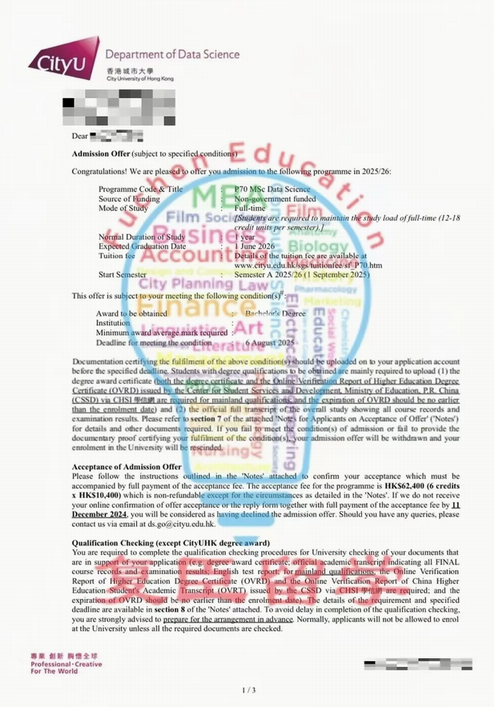 CityU
Department of Data Science
香港城市大學
City University of Hong Kong
Dear
Admission Offer (subject to specified conditions)
Congratulations! We are pleased to offer you admission to the following programme in 2025/26:
Programme Code & Title : P70 MSc Data Science
Source of Funding : Non-government funded
Mode of Study : Full-time
[Students are required to maintain the study load of full-time (12-18
credit units per semester).]
Normal Duration of Study : 1 year
Expected Graduation Date : 1 June 2026
Tuition fee : Details of the tuition fee are available at
www.cityu.edu.hk/sgs/tuitionfee/sf_P70.htm
Start Semester : Semester A 2025/26 (1 September 2025)
This offer is subject to your meeting the following condition(s)
Award to be obtained : Bachelor's Degree
Institution :
Minimum award average mark required :
Deadline for meeting the condition : 6 August 2025
Documentation certifying the fulfilment of the above condition(s) should be uploaded on to your application account
before the specified deadline. Students with degree qualifications to be obtained are mainly required to upload (1) the
degree award certificate (both the degree certificate and the Online Verification Report of Higher Education Degree
Certificate (OVRD) issued by the Center for Student Services and Development, Ministry of Education, P.R. China
(CSSD) via CHSI 學信網 are required for mainland qualifications, and the expiration of OVRD should be no earlier
than the enrolment date) and (2) the official full transcript of the overall study showing all course records and
examination results. Please refer to section 7 of the attached 'Notes for Applicants on Acceptance of Offer' ('Notes')
for details and other documents required. If you fail to meet the condition(s) of admission or fail to provide the
documentary proof certifying your fulfilment of the condition(s), your admission offer will be withdrawn and your
enrolment in the University will be rescinded.
Acceptance of Admission Offer
Please follow the instructions outlined in the 'Notes' attached to confirm your acceptance which must be
accompanied by full payment of the acceptance fee. The acceptance fee for the programme is HK$62,400 (6 credits
x HK$10,400) which is non-refundable except for the circumstances as detailed in the 'Notes'. If we do not receive
your online confirmation of offer acceptance or the reply form together with full payment of the acceptance fee by 11
December 2024, you will be considered as having declined the admission offer. Should you have any queries, please
contact us via email at ds.go@cityu.edu.hk.
Qualification Checking (except CityUHK degree award)
You are required to complete the qualification checking procedures for University checking of your documents that
are in support of your application
degree award certificate, official academic transcript indicating all FINAL
course records and examination results, English test report; for mainland qualifications, the Online Verification
Report of Higher Education Degree Certificate (OVRD) and the Online Verification Report of China Higher
Education Student's Academic Transcript (OVRD) issued by the CSSD via CHSI are required; and the
expiration of OVRD should be no earlier than the enrolment date). The details of the requirement and specified
deadline are available in section 8 of the 'Notes' attached. To avoid delay in completion of the qualification checking,
you are strongly advised to prepare for the arrangement in advance. Normally, applicants will not be allowed to enrol
at the University unless all the required documents are checked.
專業 創新 胸懷全球
Professional·Creative
For The World
1 / 3
Education
MBA
Film
Business
Biology
Accounting
City Planning Law
Pharmacology
Marketing
Finance
Linguistics Art
Literature
Nursing
Education
留学